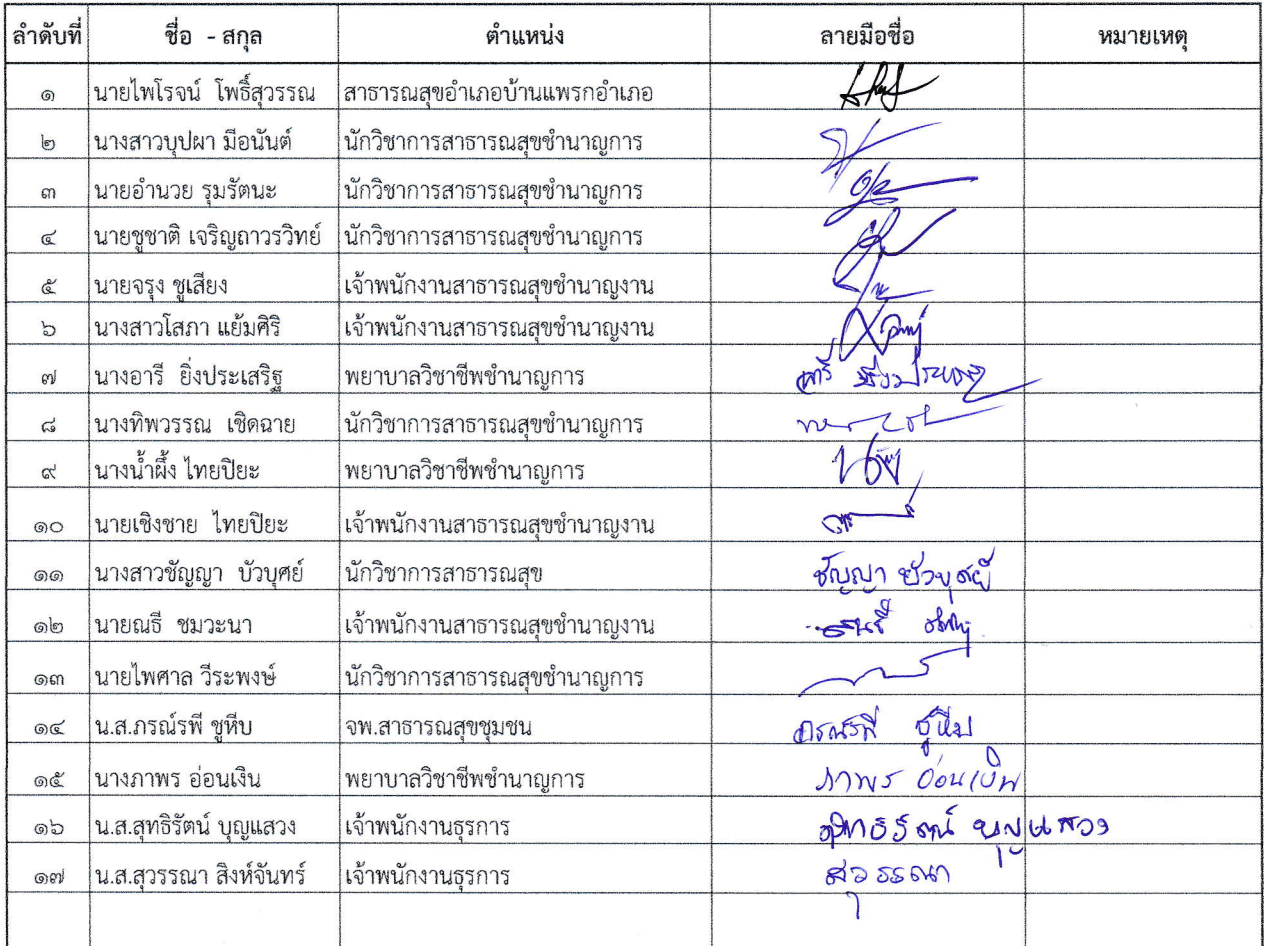 ลำดับที่ ชื่อ - สกุล ตำแหน่ง ลายมือชื่อ หมายเหตุ
๑ นายไพโรจน์ โพธิ์สุวรรณ สาธารณสุขอำเภอบ้านแพรกอำเภอ
๒ นางสาวบุปผา มีอนันต์ นักวิชาการสาธารณสุขชำนาญการ
๓ นายอำนวย รุมรัตนะ นักวิชาการสาธารณสุขชำนาญการ
๔ นายชูชาติ เจริญถาวรวิทย์ นักวิชาการสาธารณสุขชำนาญการ
๕ นายจรุง ชูเสียง เจ้าพนักงานสาธารณสุขชำนาญงาน
๖ นางสาวโสภา แย้มศิริ เจ้าพนักงานสาธารณสุขชำนาญงาน
๗ นางอารี ยิ่งประเสริฐ พยาบาลวิชาชีพชำนาญการ อารี ยิ่งประเสริฐ
๘ นางทิพวรรณ เชิดฉาย นักวิชาการสาธารณสุขชำนาญการ
๙ นางน้ำผึ้ง ไทยปิยะ พยาบาลวิชาชีพชำนาญการ
๑๐ นายเชิงชาย ไทยปิยะ เจ้าพนักงานสาธารณสุขชำนาญงาน
๑๑ นางสาวชัญญา บัวบุศย์ นักวิชาการสาธารณสุข ชัญญา บัวบุศย์
๑๒ นายณธี ชมวะนา เจ้าพนักงานสาธารณสุขชำนาญงาน
๑๓ นายไพศาล วีระพงษ์ นักวิชาการสาธารณสุขชำนาญการ
๑๔ น.ส.ภรณ์รพี ชูหีบ จพ.สาธารณสุขชุมชน ภรณ์รพี ชูหีบ
๑๕ นางภาพร อ่อนเงิน พยาบาลวิชาชีพชำนาญการ ภาพร อ่อนเงิน
๑๖ น.ส.สุทธิรัตน์ บุญแสวง เจ้าพนักงานธุรการ สุทธิรัตน์ บุญแสวง
๑๗ น.ส.สุวรรณา สิงห์จันทร์ เจ้าพนักงานธุรการ สุวรรณา